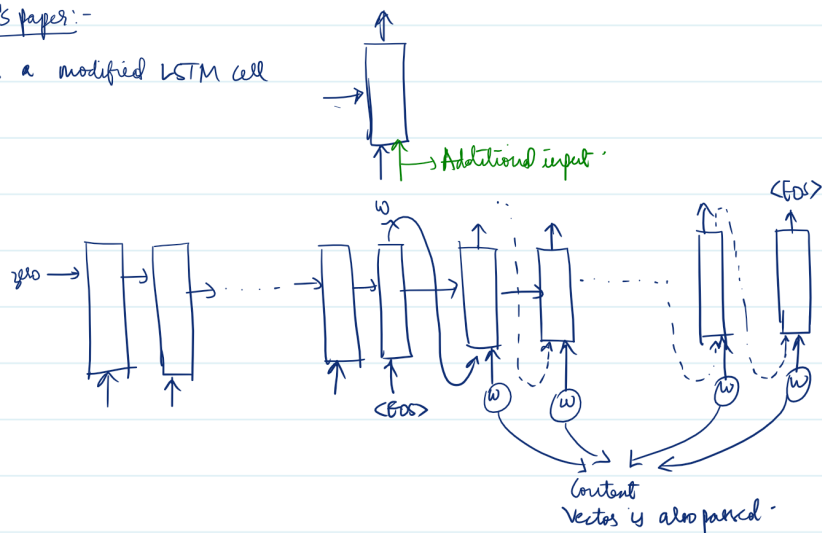 's paper:-
a modified LSTM cell
Additional input.
<EOS>
w
zero
<EOS>
w
w
w
w
Content
Vector is also passed.